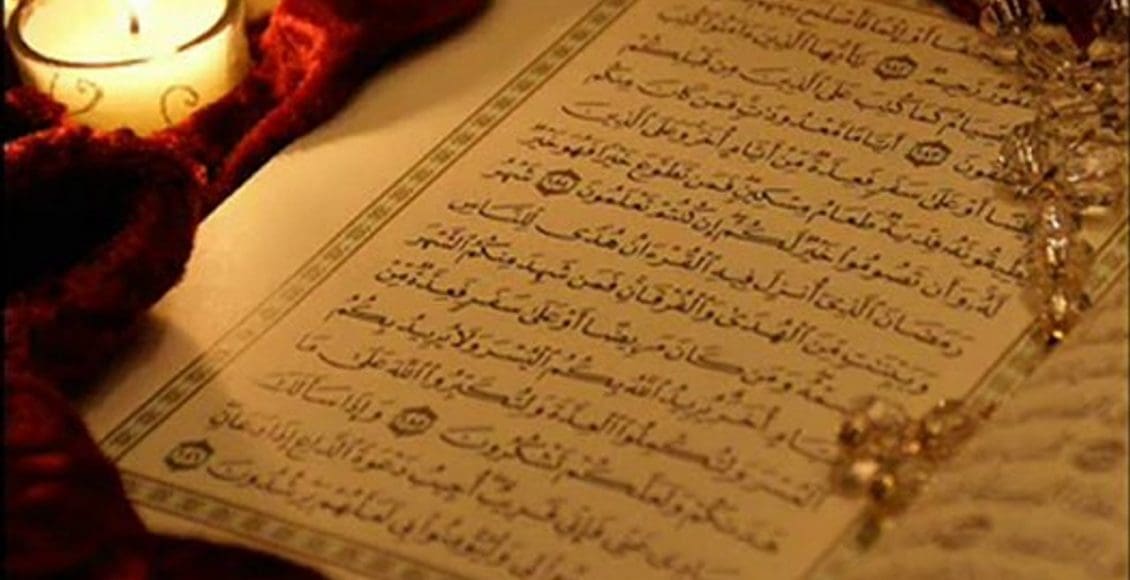 أَوْ إِثْمًا فَأَصْلَحَ بَيْنَهُمْ
غَفُورٌ رَّحِيمٌ ١٨٢ يَٰٓأَيُّهَا ٱلَّذِينَ ءَامَنُوا۟ كُتِبَ
ٱلصِّيَامُ كَمَا كُتِبَ عَلَى ٱلَّذِينَ مِن قَبْلِكُمْ
تَتَّقُونَ ١٨٣ أَيَّامًا مَّعْدُودَٰتٍ فَمَن كَانَ مِنكُم
مَّرِيضًا أَوْ عَلَىٰ سَفَرٍ فَعِدَّةٌ مِّنْ أَيَّامٍ أُخَرَ وَعَلَى ٱلَّذِينَ
يُطِيقُونَهُۥ فِدْيَةٌ طَعَامُ مِسْكِينٍ فَمَن تَطَوَّعَ خَيْرًا فَهُوَ خَيْرٌ
لَّهُۥ وَأَن تَصُومُوا۟ خَيْرٌ لَّكُمْ إِن كُنتُمْ تَعْلَمُونَ ١٨٤ شَهْرُ
رَمَضَانَ ٱلَّذِىٓ أُنزِلَ فِيهِ ٱلْقُرْءَانُ هُدًى لِّلنَّاسِ
وَبَيِّنَٰتٍ مِّنَ ٱلْهُدَىٰ وَٱلْفُرْقَانِ فَمَن شَهِدَ مِنكُمُ ٱلشَّهْرَ
فَلْيَصُمْهُ وَمَن كَانَ مَرِيضًا أَوْ عَلَىٰ سَفَرٍ فَعِدَّةٌ مِّنْ
أَيَّامٍ أُخَرَ يُرِيدُ ٱللَّهُ بِكُمُ ٱلْيُسْرَ وَلَا يُرِيدُ بِكُمُ
ٱلْعُسْرَ وَلِتُكْمِلُوا۟ ٱلْعِدَّةَ وَلِتُكَبِّرُوا۟ ٱللَّهَ عَلَىٰ مَا
هَدَىٰكُمْ وَلَعَلَّكُمْ تَشْكُرُونَ ١٨٥ وَإِذَا سَأَلَكَ
عِبَادِى عَنِّى فَإِنِّى قَرِيبٌ أُجِيبُ دَعْوَةَ ٱلدَّاعِ إِذَا دَعَانِ
لِى وَلْيُؤْمِنُوا۟ بِى لَعَلَّهُمْ يَرْشُدُونَ ١٨٦